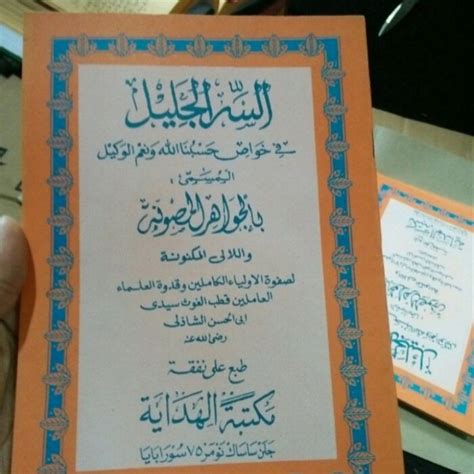 السر الجليل
في خواص حسبنا الله ونعم الوكيل
المسمى :
بالجواهر المصونة
واللآلى المكنونة
لصفوة الاولياء الكاملين وقدوة العلماء
العاملين قطب الغوث سيدى
ابى الحسن الشاذلى
رضى الله عنه
طبع على نفقة
مكتبة الهداية
جلن ساساك نومر ٧٥ سورابايا